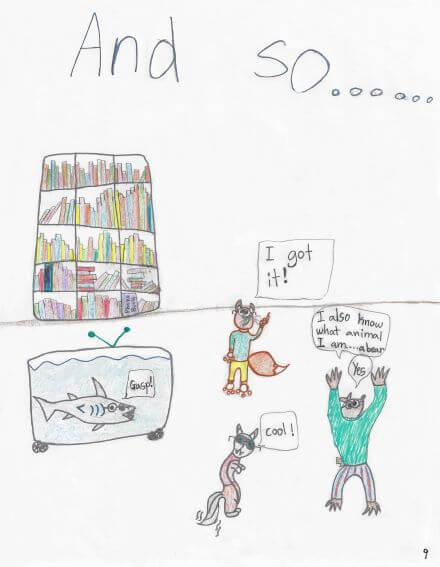 And so.........
I got
it!
I also know
what animal
I am...a bear
Yes
Gasp!
cool!
9